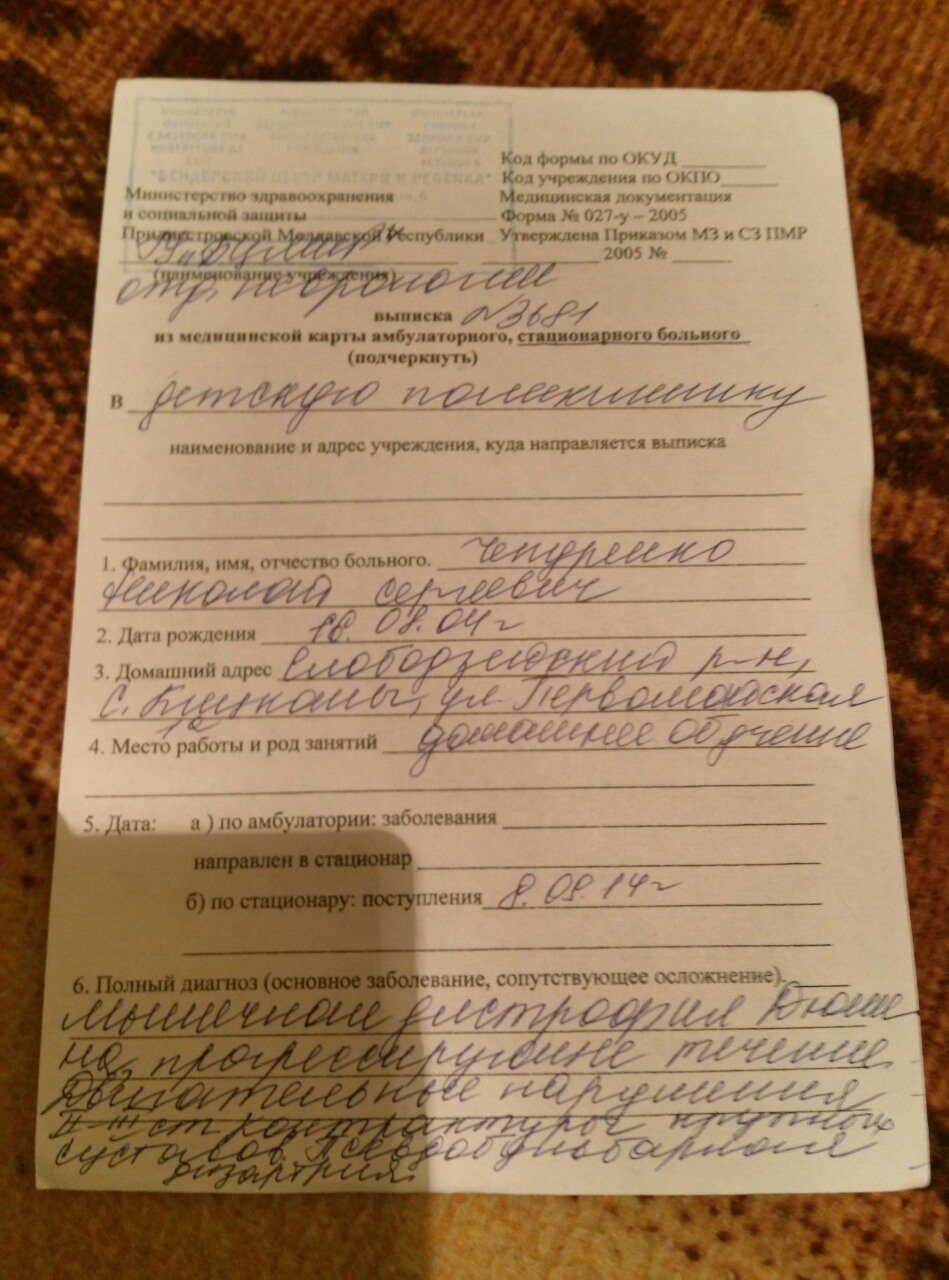 "БЕНДЕРСКИЙ ЦЕНТР МАТЕРИ И РЕБЕНКА"
Код формы по ОКУД ________
Код учреждения по ОКПО______
Министерство здравоохранения Медицинская документация
и социальной защиты Форма № 027-у – 2005
Приднестровской Молдавской Республики Утверждена Приказом МЗ и СЗ ПМР
________ 2005 № ______
(наименование учреждения)
отд. неврологии
выписка №3681
из медицинской карты амбулаторного, стационарного больного
(подчеркнуть)
В детскую поликлинику
наименование и адрес учреждения, куда направляется выписка
1. Фамилия, имя, отчество больного. Чепуренко
Николай Сергеевич
2. Дата рождения 16.08.04г
3. Домашний адрес Слободзейский р-н,
с. Кицканы, ул. Первомайская
12
4. Место работы и род занятий домашнее обучение
5. Дата: а ) по амбулатории: заболевания
направлен в стационар
б) по стационару: поступления 8.09.14г
6. Полный диагноз (основное заболевание, сопутствующее осложнение)
Мышечная дистрофия Дюшен
на, прогрессирующее течение
Двигательные нарушения
II-III ст контрактуры крупных
суставов. Псевдобульбарная
дизартрия.